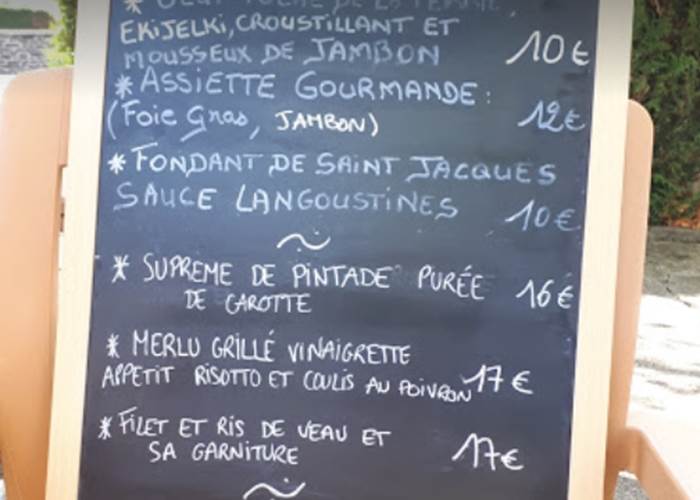 * OEUF POCHÉ DE LA FERME,
EKIJELKI, CROUSTILLANT ET
MOUSSEUX DE JAMBON 10€
* ASSIETTE GOURMANDE :
(Foie Gras, JAMBON) 12€
* FONDANT DE SAINT JACQUES
SAUCE LANGOUSTINES 10€
~
* SUPREME DE PINTADE PURÉE
DE CAROTTE 16€
* MERLU GRILLÉ VINAIGRETTE
APPETIT RISOTTO ET COULIS AU POIVRON 17€
* FILET ET RIS DE VEAU ET
SA GARNITURE 17€
~